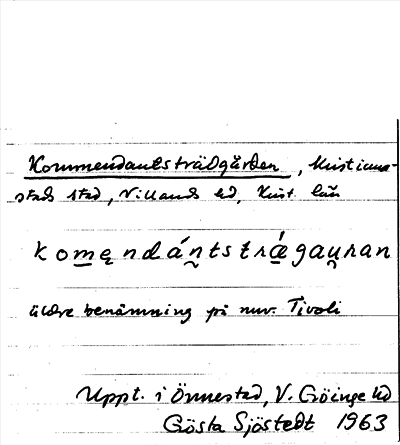 Kommendantsträdgården, Kristian-
stads stad, Villands hd, Krist. län
komendántstrǽgau̯ran
äldre benämning på nuv. Tivoli
Uppt. i Önnestad, V. Göinge hd
Gösta Sjöstedt 1963